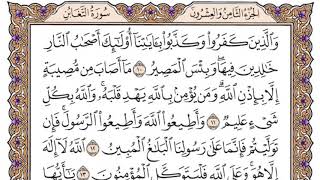 سُورَةُ التَّغَابُنِ
الجُزْءُ الثَّامِنُ وَالعِشْرُونَ
وَالَّذِينَ كَفَرُوا وَكَذَّبُوا بِآيَاتِنَا أُولَٰئِكَ أَصْحَٰبُ النَّارِ
خَٰلِدِينَ فِيهَا وَبِئْسَ الْمَصِيرُ ١٠ مَا أَصَابَ مِن مُّصِيبَةٍ
إِلَّا بِإِذْنِ اللَّهِ وَمَن يُؤْمِن بِاللَّهِ يَهْدِ قَلْبَهُ وَاللَّهُ بِكُلِّ
شَيْءٍ عَلِيمٌ ١١ وَأَطِيعُوا اللَّهَ وَأَطِيعُوا الرَّسُولَ فَإِن
تَوَلَّيْتُمْ فَإِنَّمَا عَلَىٰ رَسُولِنَا الْبَلَٰغُ الْمُبِينُ ١٢ اللَّهُ لَا إِلَٰهَ
إِلَّا هُوَ وَعَلَى اللَّهِ فَلْيَتَوَكَّلِ الْمُؤْمِنُونَ ١٣ يَٰأَيُّهَا